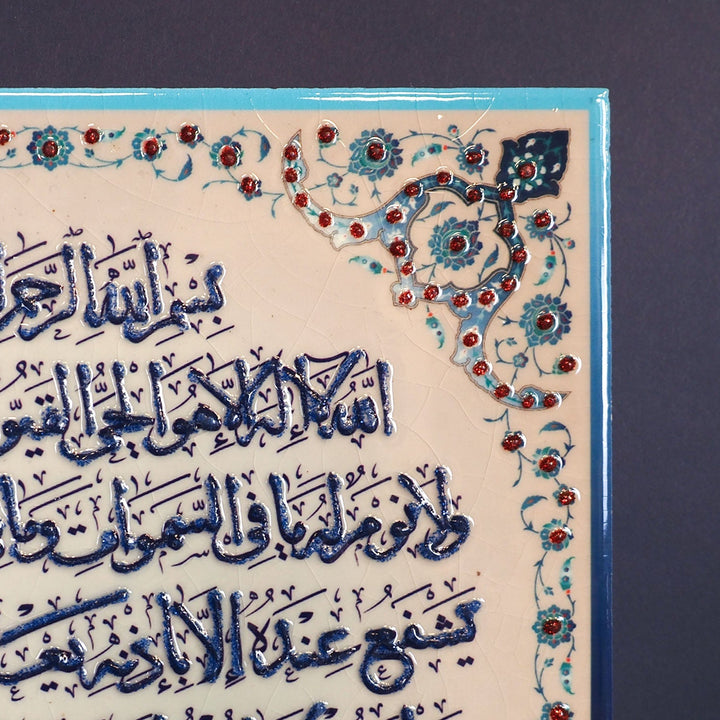 بسم الله الرحم
الله لا إله إلا هو الحي القيو
ولا نوم له ما في السموات وما
يشفع عنده إلا بإذنه يع